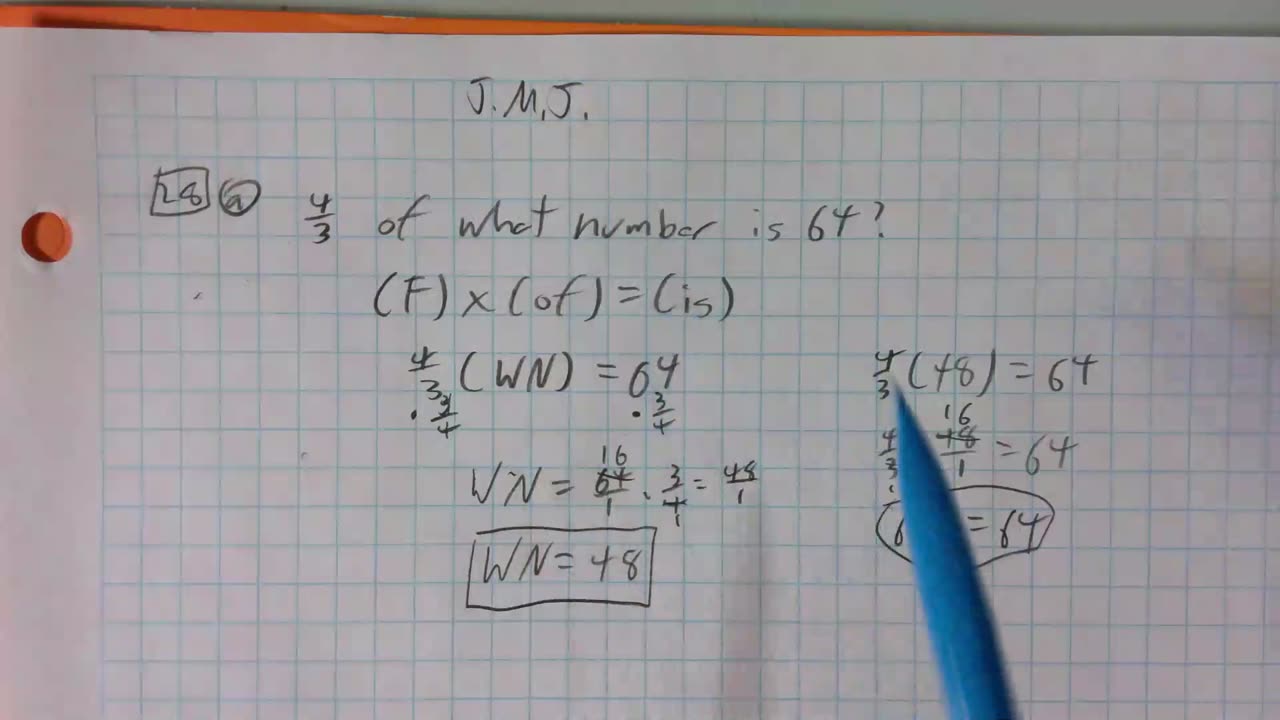 J.M.J.
28 a 4/3 of what number is 64?
(F) × (of) = (is)
4/3 (WN) = 64
· 3/4 · 3/4
WN = 16 64/1 · 3/4 1 = 48/1
WN = 48
4/3 (48) = 64
4/3 16 48/1 = 64
1
6 = 64